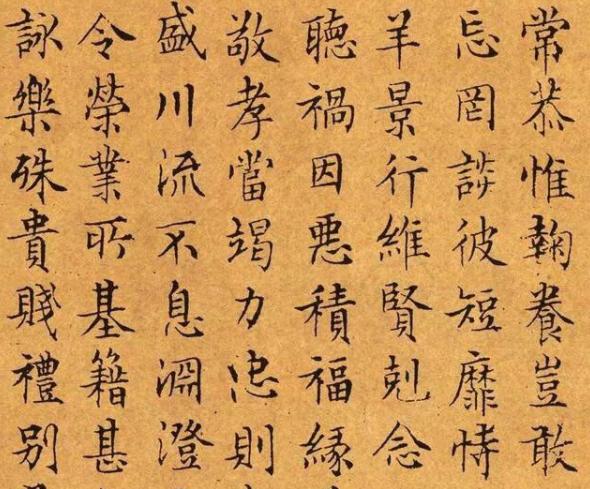 常恭惟鞠養豈敢
忘罔談彼短靡恃
羊景行維賢剋念
聽禍因惡積福緣
敬孝當竭力忠則
盛川流不息淵澄
令榮業所基籍甚
詠樂殊貴賤禮别